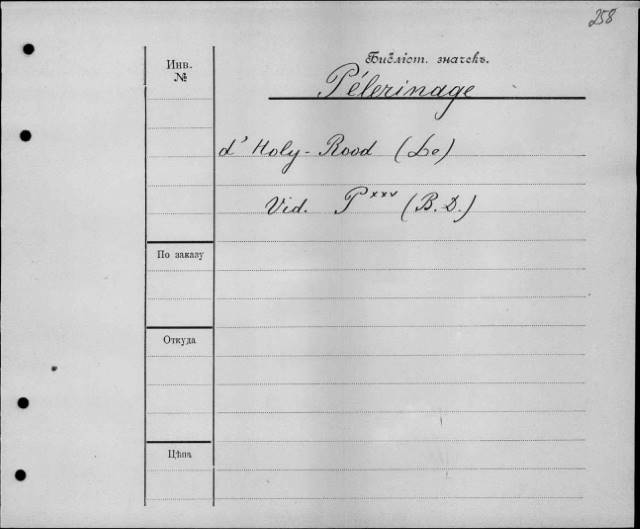 258
Инв.
№
Библіот. значекъ.
Pélerinage
d' Holy-Rood (Le)
Vid. P*** (B. D.)
По заказу
Откуда
Цѣна